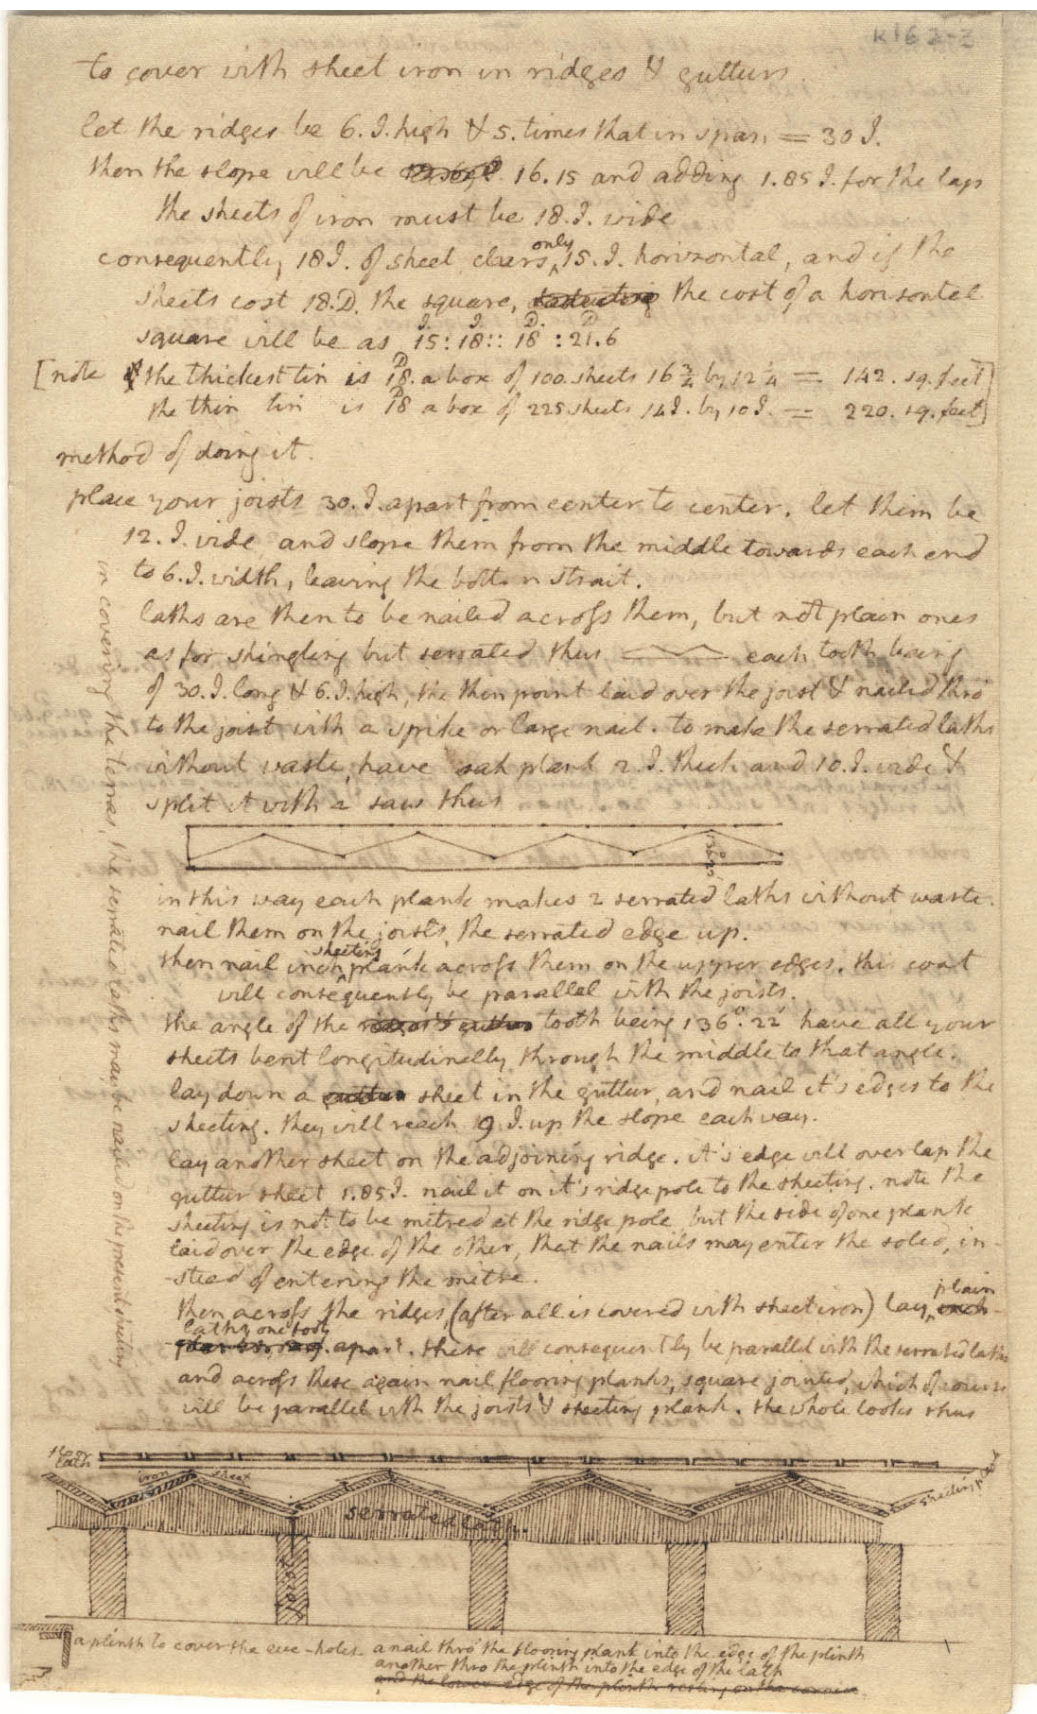 K162-3
to cover with sheet iron in ridges & gutturs.
let the ridges be 6. I. high & 5. times that in span = 30 I.
then the slope will be 16.15 and adding 1.85 I. for the laps
the sheets of iron must be 18. I. wide
consequently 18 I. of sheet clears only 15. I. horizontal, and if the
sheets cost 18. D. the square, deducting the cost of a horisontal
square will be as 15 I. : 18 I. :: 18 D. : 21.6 D
[note the thickest tin is 18. D a box of 100. sheets 16 3/4 by 12 1/4 = 142. sq. feet]
the thin tin is 18 D a box of 225 sheets 14 I. by 10 I. = 220. sq. feet]
method of doing it.
place your joists 30. I. apart from center to center. let them be
12. I. wide and slope them from the middle towards each end
to 6. I. width, leaving the bottom strait.
laths are then to be nailed across them, but not plain ones
as for shingling but serrated thus each tooth being
of 30. I. long & 6. I. high, the then point laid over the joist & nailed thro'
to the joist with a spike or large nail. to make the serrated laths
without waste, have oak plank 2. I. thick and 10. I. wide &
split it with a saw thus
in this way each plank makes 2 serrated laths without waste.
nail them on the joists, the serrated edge up.
then nail inch sheeting plank across them on the upper edges. this coat
will consequently be parallel with the joists.
the angle of the ridges & guttur tooth being 136°. 22' have all your
sheets bent longitudinally through the middle to that angle.
lay down a guttur sheet in the guttur, and nail it's edges to the
sheeting. they will reach 9 I. up the slope each way.
lay another sheet on the adjoining ridge. it's edge will overlap the
guttur sheet 1.85 I. nail it on it's ridge pole to the sheeting. note the
sheeting is not to be mitred at the ridge pole, but the side of one plank
laid over the edge of the other, that the nails may enter the solid, in-
-stead of entering the mitre.
then across the ridges, (after all is covered with sheet iron) lay plain inch-
laths one foot apart. these will consequently be parallel with the serrated laths
and across these again nail flooring planks, square jointed, which of course
will be parallel with the joists & sheeting plank. the whole looks thus
in covering the terras, the serrated laths may be nailed on the present sheeting
floor
lath
iron sheet
sheeting plank
serrated lath.
joist
a plinth to cover the eve-holes. a nail thro' the flooring plank into the edge of the plinth
another thro the plinth into the edge of the lath
and the lower edge of the plinth resting on the cornice.